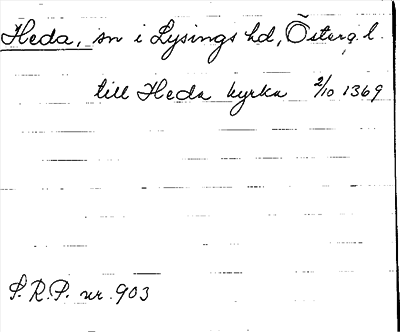 Heda, sn i Lysings hd, Österg. l.
till Heda kyrka 2/10 1369
S. R. P. nr. 903